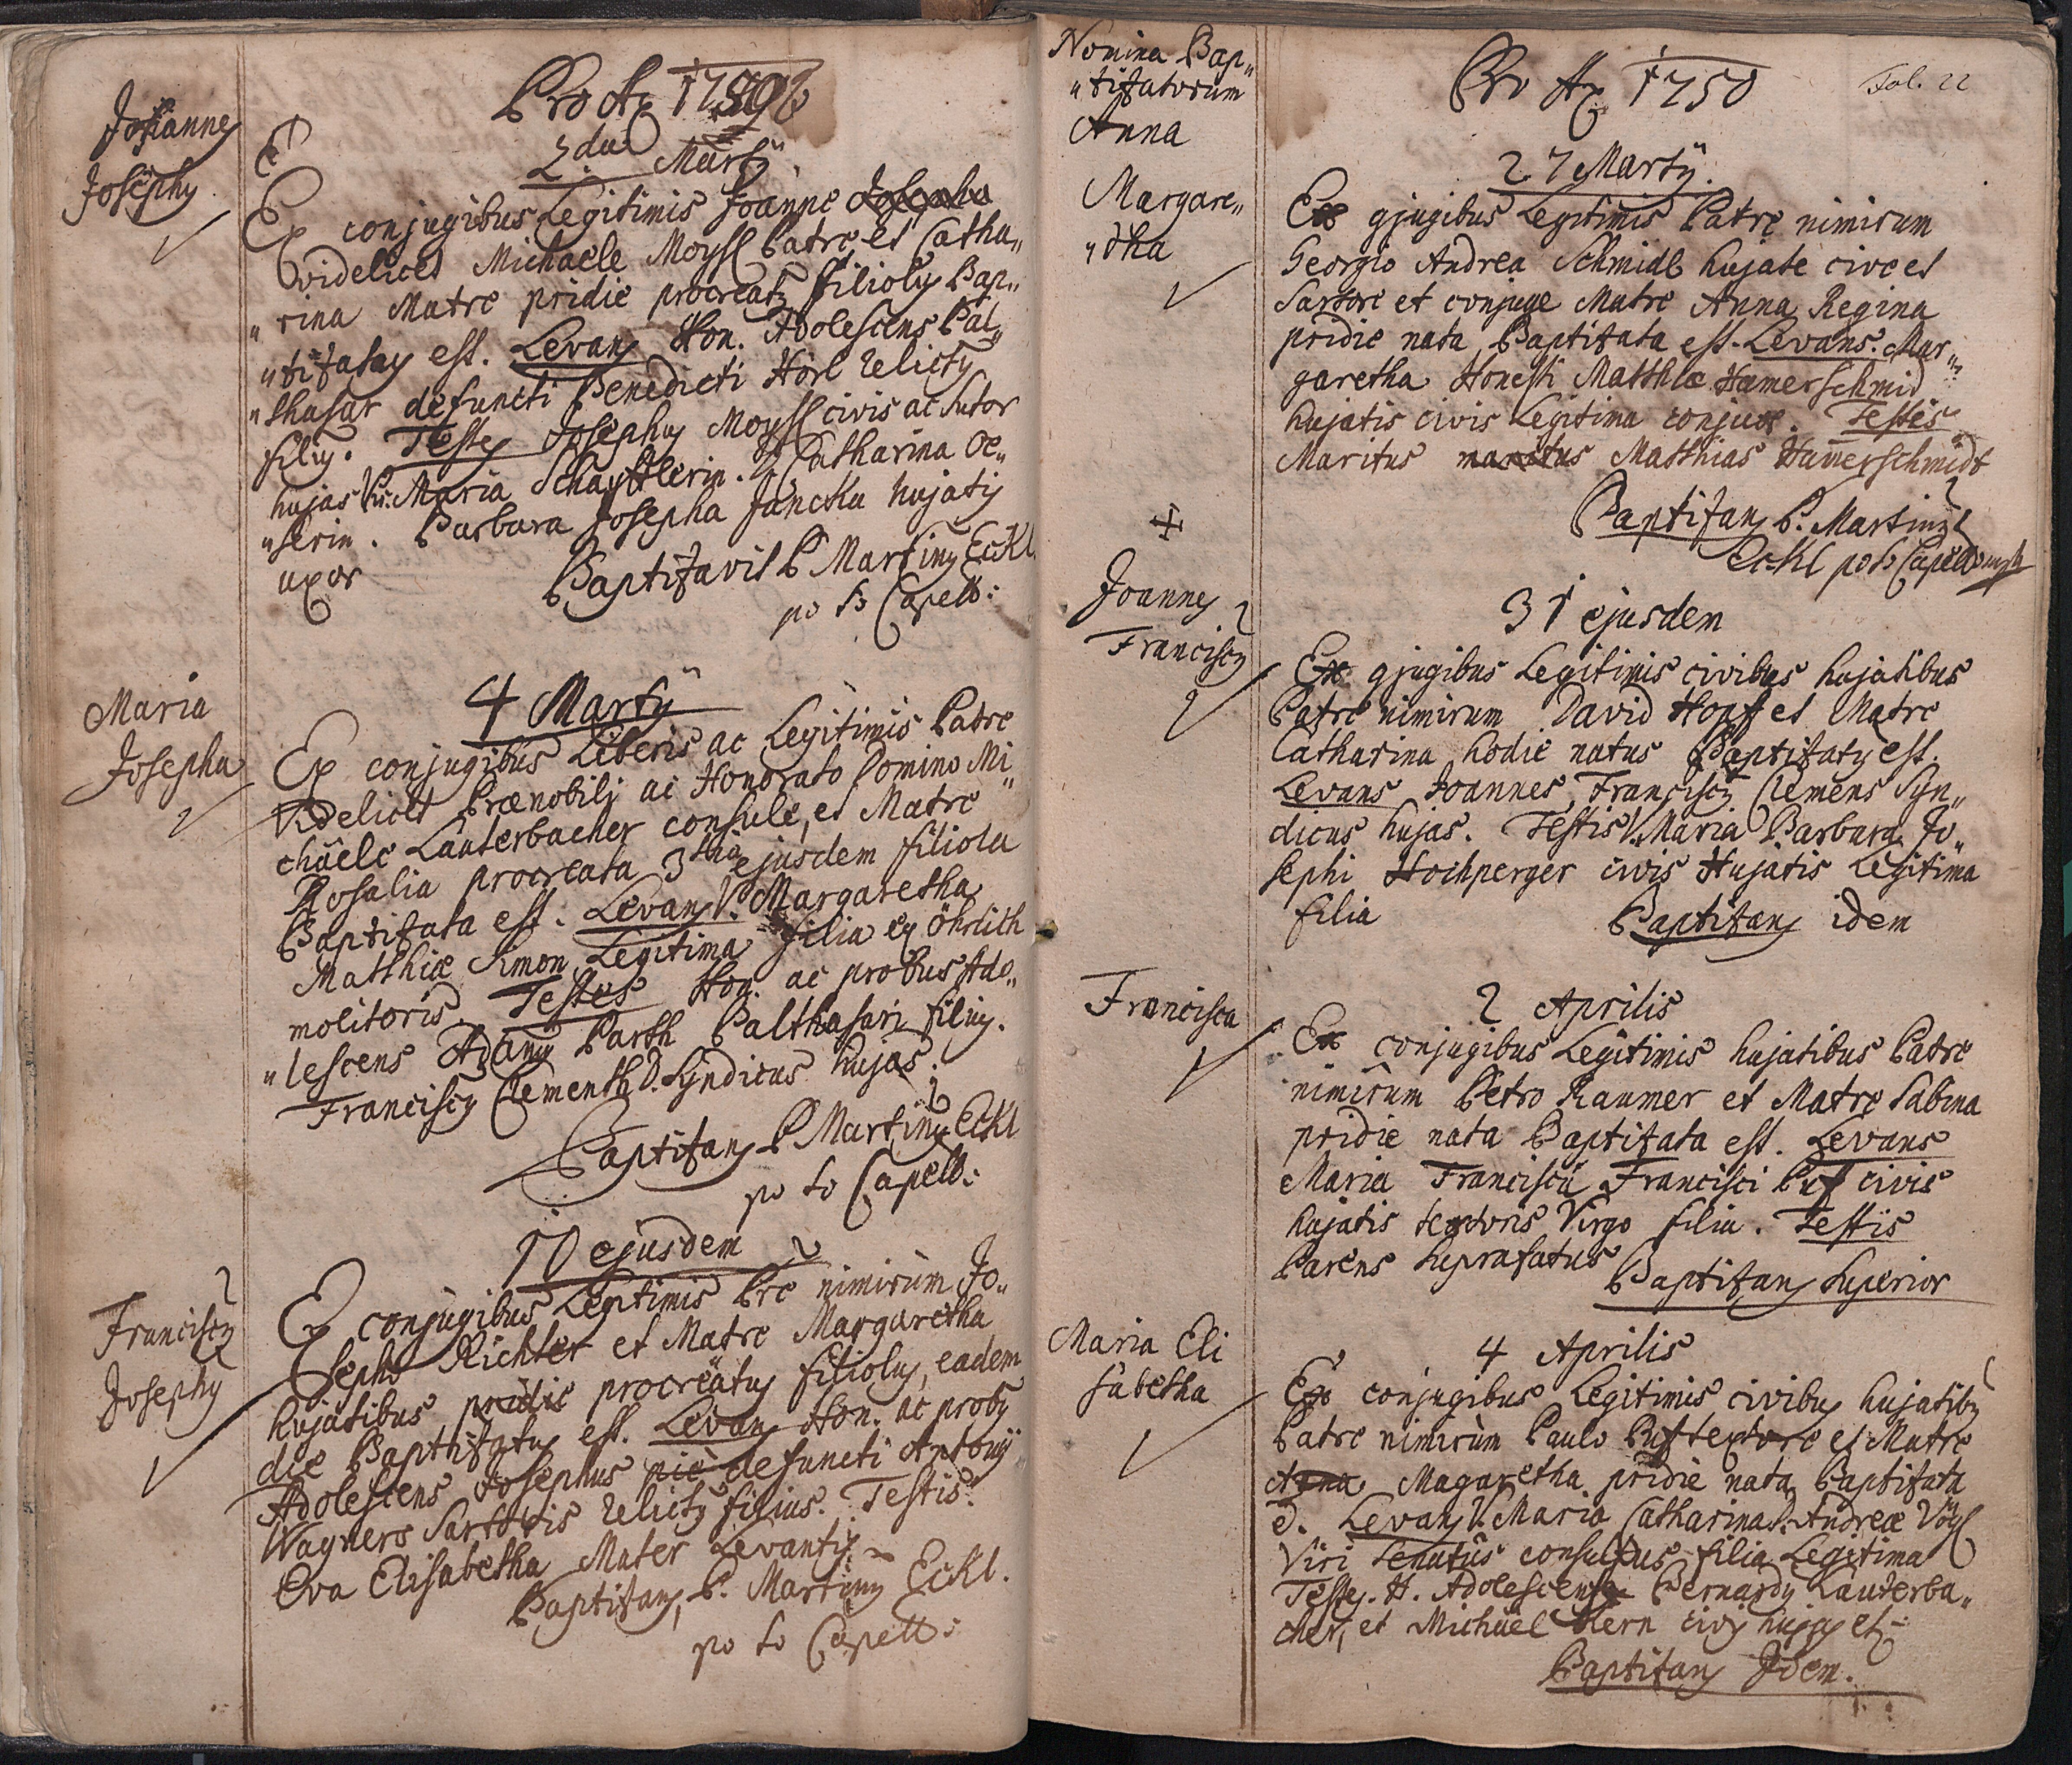 Johannes
Josephus
Maria
Josepha
Franciscus
Josephus
2da Martij
Ex conjugibus Legitimis Joanne Josepho
videlicet Michaele Moysl Patre et Catha„
„rina Matre pridie procreatus filiolus Bap„
„tizatus est. Levans Hon. Adolescens Bal„
„thasar defuncti Benedicti Hörl relictus
filius. Testes Josephus Moysl civis ac sutor
hujas V. Maria
„serin. Barbara Josepha Juncku hujatis
uxor Baptizavit P Martinus Eckl
p: t: Capell:
4 Martij
Ex conjugibus Liberis ac Legitimis Patre
videlicet Prænobili ac Honorato Domino Mi„
chaele Lauterbacher consule, et Matre
Rosalia procreata 3tia ejusdem filiola
Baptizata est. Levans V. Margaretha
Matthiæ Simon Legitima filia ex
molitoris. Testes Hon. ac probus Ado„
„lescens Adamus Barth Balthasari filius.
Franciscus Clementh D. Syndicus hujas.
Baptizans P Martinus Eckl
p: to Capell:
10 ejusdem
Ex conjugibus Legitimis Pre nimirum Jo„
sepho Richter et Matre Margaretha
hujatibus pridie procreatus filiolus, eadem
die Baptizatus est. Levans Hon. ac probus
Adolescens Josephus pie defuncti Antonij
Wagners Sartoris relictus filius. Testis.
Eva Elisabetha Mater Levantis
Baptizans, P. Martinus Eckl.
p: to Capell:
Nomina Bap„
„tizatorum
Anna
Margare„
„tha
Joannes
Franciscus
Francisca
Maria Eli
sabetha
Pro Ao 1750
Fol. 22
27 Martij.
Ex gjugibus Legitimis Patre nimirum
Georgio Andrea Schmidl hujate cive et
Sartore et conjuge Matre Anna Regina
pridie nata Baptizata est. Levans. Mar„
garetha Honesti Matthiæ Hamerschmid
hujatis civis Legitima conjux. Testes
Maritus maritus Matthias Hamerschmidt
Baptizans P. Martinus
Eckl p: t: Capell
31 ejusdem
Ex gjugibus Legitimis civibus hujatibus
Patre nimirum David Hopf et Matre
Catharina hodie natus Baptizatus est.
Levans Joannes, Franciscus Clemens Syn„
dicus hujas. Testis V. Maria Barbara Jo„
sephi Hochperger civis Hujatis Legitima
filia Baptizans idem
2 Aprilis
Ex conjugibus Legitimis hujatibus Patre
nimirum Petro Raumer et Matre Sabina
pridie nata Baptizata est. Levans
Maria Francisca Francisci Puf civis
hujatis textoris Virgo filia. Testis
Parens suprafatus
Baptizans Superior
4 Aprilis
Ex conjugibus Legitimis civibus hujatibus
Patre nimirum Paulo Puf textore et Matre
Anna Magaretha pridie nata Baptizata
e. Levans V. Maria Catharina D. Andreæ Vogl
Viri senatus consultus filia Legitima
Testes. H. Adolescens Bernardus Lauterba„
cher, et Michael Kern civis hujas et
Baptizans Idem.